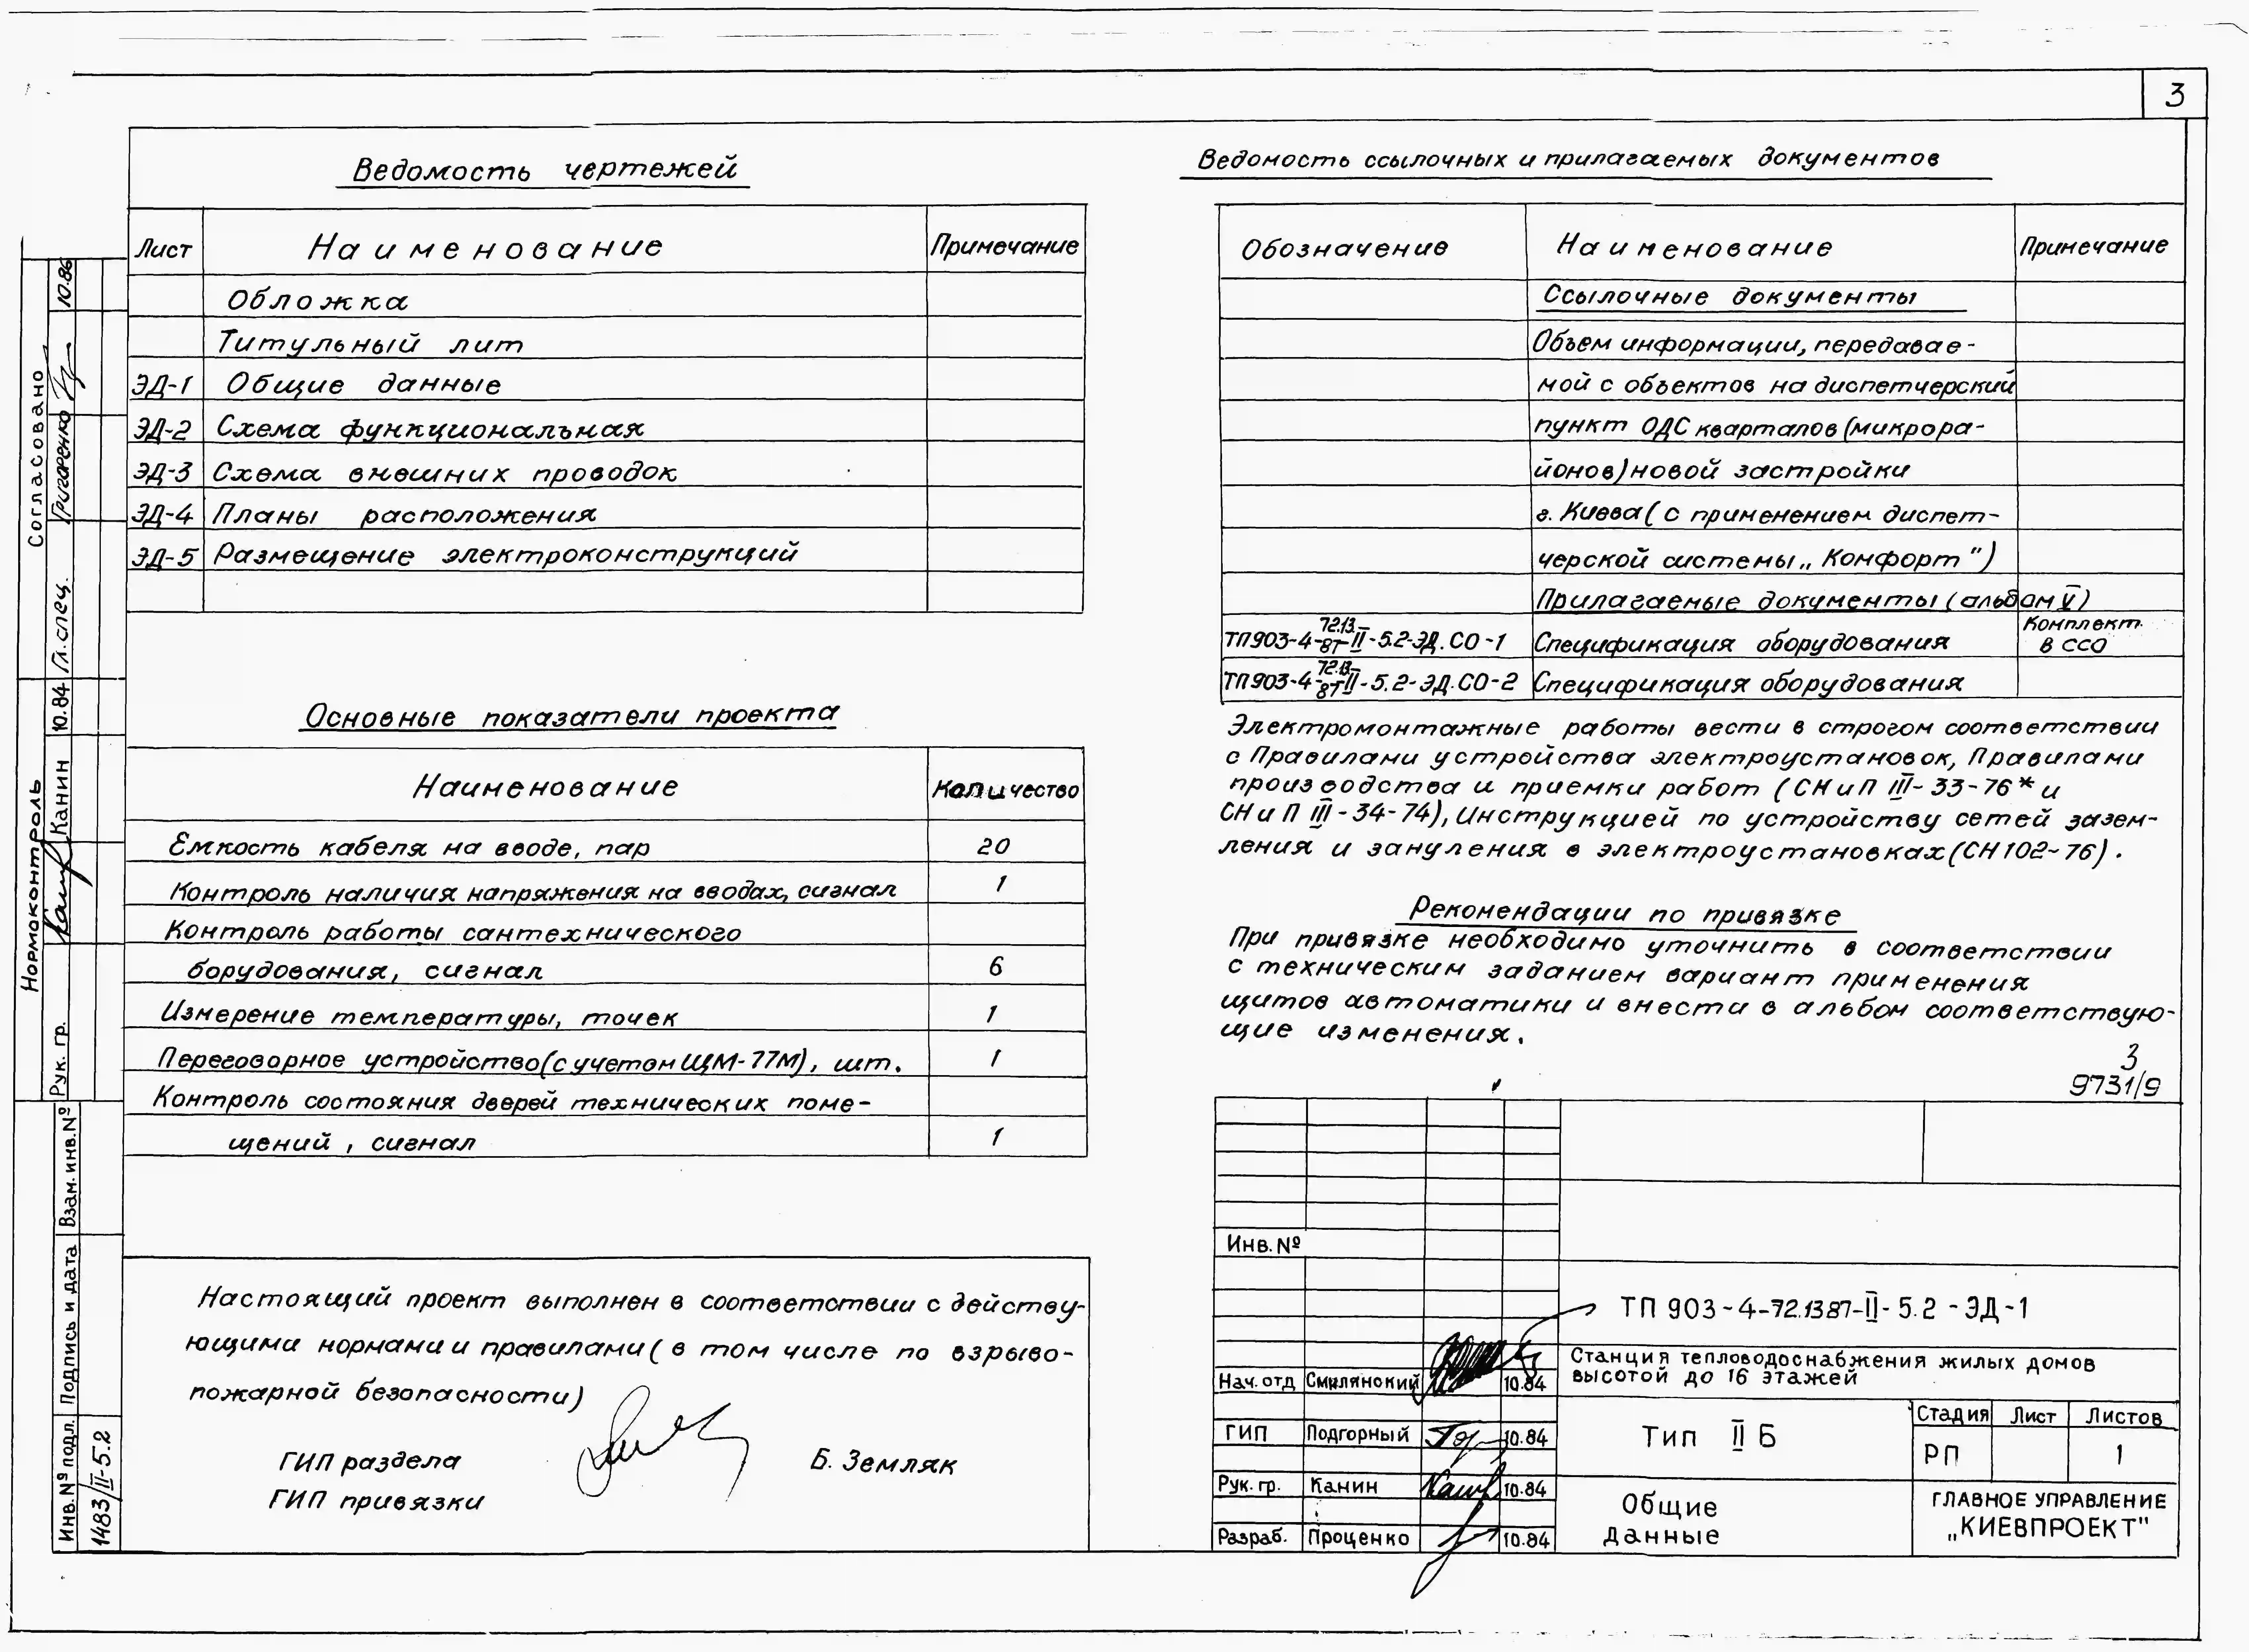 3
Ведомость чертежей
Лист Наименование Примечание
Обложка
Титульный лит
ЭД-1 Общие данные
ЭД-2 Схема функциональная
ЭД-3 Схема внешних проводок
ЭД-4 Планы расположения
ЭД-5 Размещение электроконструкций
Основные показатели проекта
Наименование Количество
Емкость кабеля на вводе, пар 20
Контроль наличия напряжения на вводах, сигнал 1
Контроль работы сантехнического
борудования, сигнал 6
Измерение температуры, точек 1
Переговорное устройство(с учетом ЩМ-77М), шт. 1
Контроль состояния дверей технических поме-
щений, сигнал 1
Настоящий проект выполнен в соответствии с действу-
ющими нормами и правилами (в том числе по взрыво-
пожарной безопасности)
ГИП раздела Б. Земляк
ГИП привязки
Ведомость ссылочных и прилагаемых документов
Обозначение Наименование Примечание
Ссылочные документы
Объем информации, передавае-
мой с объектов на диспетчерский
пункт ОДС кварталов (микрора-
йонов) новой застройки
г. Киева (с применением диспет-
черской системы „Комфорт")
Прилагаемые документы (альбом V)
ТП903-4-72.13.87-II-5.2-ЭД.СО-1 Спецификация оборудования Комплект в ССО
ТП903-4-72.13.87-II-5.2-ЭД.СО-2 Спецификация оборудования
Электромонтажные работы вести в строгом соответствии
с Правилами устройства электроустановок, Правилами
производства и приемки работ (СНиП III-33-76* и
СНиП III-34-74), Инструкцией по устройству сетей зазем-
ления и зануления в электроустановках (СН102-76).
Рекомендации по привязке
При привязке необходимо уточнить в соответствии
с техническим заданием вариант применения
щитов автоматики и внести в альбом соответствую-
щие изменения.
3
9731/9
Инв.№
ТП 903-4-72.13 87-II-5.2-ЭД-1
Станция тепловодоснабжения жилых домов
высотой до 16 этажей
Нач.отд Смилянский 10.84
ГИП Подгорный 10.84
Рук. гр. Канин 10.84
Разраб. Проценко 10.84
Тип II Б
Стадия Лист Листов
РП 1
Общие
данные
ГЛАВНОЕ УПРАВЛЕНИЕ
„КИЕВПРОЕКТ"
Согласовано
Гл.спец. Григаренко 10.86
Нормоконтроль
Рук. гр. Канин 10.84
Взам. инв.№
Подпись и дата
Инв.№ подл. 1483/II-5.2